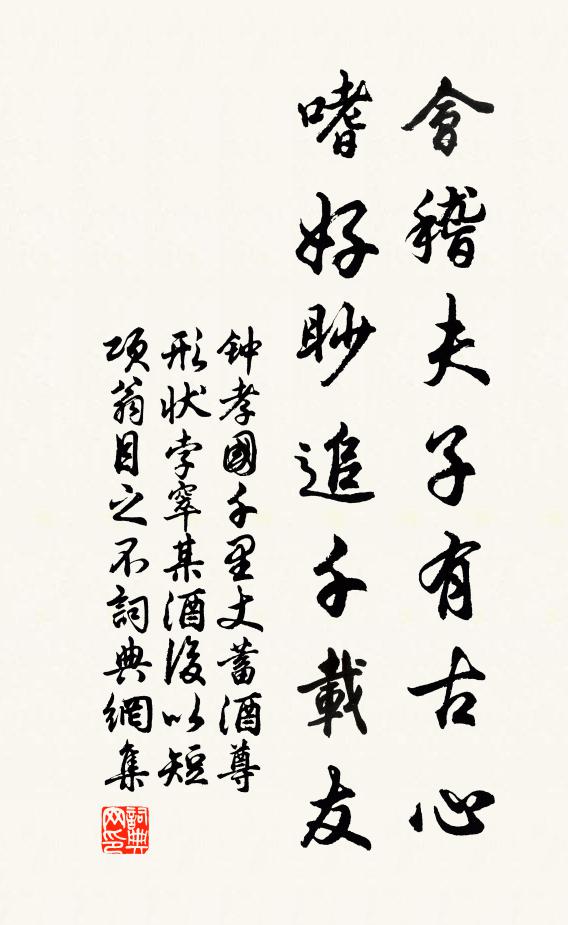 會稽夫子有古心
嗜好眇追千載友
钟孝國千里丈蓄酒尊
形状孛窣某酒後以短
项翁目之不詞典網集
詞典网印